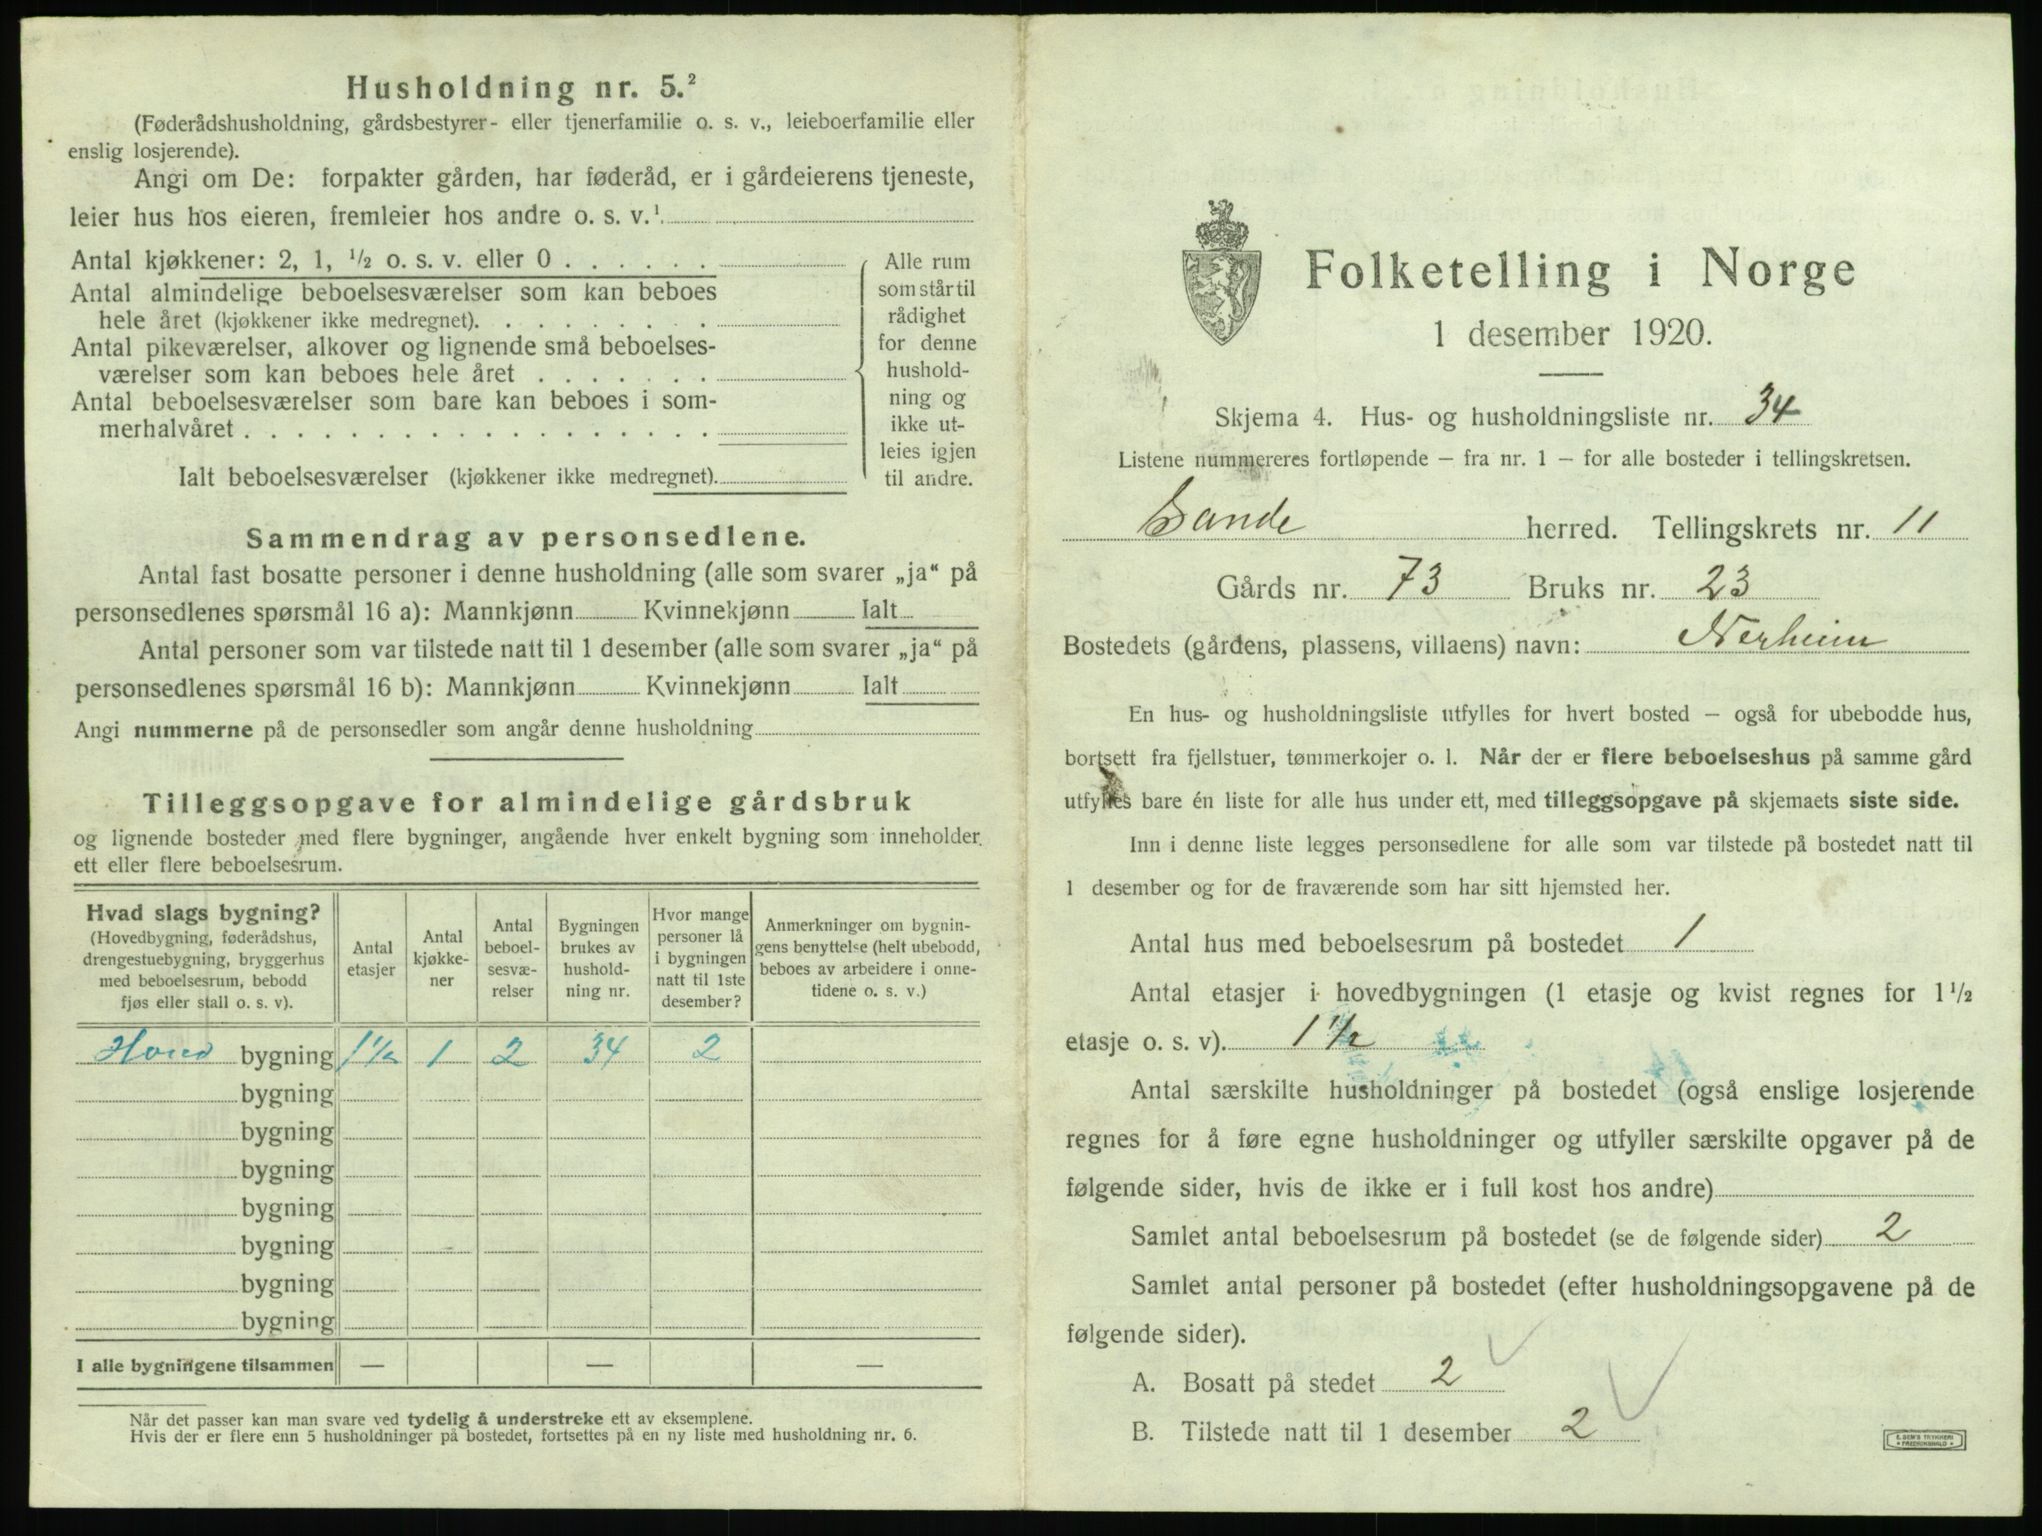 Husholdning nr. 5.²
(Føderådshusholdning, gårdsbestyrer- eller tjenerfamilie o. s. v., leieboerfamilie eller
enslig losjerende).
Angi om De: forpakter gården, har føderåd, er i gårdeierens tjeneste,
leier hus hos eieren, fremleier hos andre o. s. v.¹
Antal kjøkkener: 2, 1, ½ o. s. v. eller 0 . . . . . .
Antal almindelige beboelsesværelser som kan beboes
hele året (kjøkkener ikke medregnet). . . . . . . . .
Antal pikeværelser, alkover og lignende små beboelses-
værelser som kan beboes hele året . . . . . . .
Antal beboelsesværelser som bare kan beboes i som-
merhalvåret . . . . . . . . . . . . . . . . . .
Ialt beboelsesværelser (kjøkkener ikke medregnet).
Alle rum
som står til
rådighet
for denne
hushold-
ning og
ikke ut-
leies igjen
til andre.
Sammendrag av personsedlene.
Antal fast bosatte personer i denne husholdning (alle som svarer „ja“ på
personsedlenes spørsmål 16 a): Mannkjønn Kvinnekjønn Ialt
Antal personer som var tilstede natt til 1 desember (alle som svarer „ja“ på
personsedlenes spørsmål 16 b): Mannkjønn Kvinnekjønn Ialt
Angi nummerne på de personsedler som angår denne husholdning
Tilleggsopgave for almindelige gårdsbruk
og lignende bosteder med flere bygninger, angående hver enkelt bygning som inneholder
ett eller flere beboelsesrum.
Hvad slags bygning?
(Hovedbygning, føderådshus,
drengestuebygning, bryggerhus
med beboelsesrum, bebodd
fjøs eller stall o. s. v).
Antal
etasjer
Antal
kjøkke-
ner
Antal
beboel-
sesvæ-
relser
Bygningen
brukes av
hushold-
ning nr.
Hvor mange
personer lå
i bygningen
natt til 1ste
desember?
Anmerkninger om bygnin-
gens benyttelse (helt ubebodd,
beboes av arbeidere i onne-
tidene o. s. v.)
Hoved bygning 1½ 1 2 34 2
bygning
bygning
bygning
bygning
bygning
bygning
bygning
I alle bygningene tilsammen — — —
Når det passer kan man svare ved tydelig å understreke ett av eksemplene.
Hvis der er flere enn 5 husholdninger på bostedet, fortsettes på en ny liste med husholdning nr. 6.
Folketelling i Norge
1 desember 1920.
Skjema 4. Hus- og husholdningsliste nr. 34
Listene nummereres fortløpende – fra nr. 1 – for alle bosteder i tellingskretsen.
Sande herred. Tellingskrets nr. 11
Gårds nr. 73 Bruks nr. 23
Bostedets (gårdens, plassens, villaens) navn: Nerheim
En hus- og husholdningsliste utfylles for hvert bosted – også for ubebodde hus,
bortsett fra fjellstuer, tømmerkojer o. l. Når der er flere beboelseshus på samme gård
utfylles bare én liste for alle hus under ett, med tilleggsopgave på skjemaets siste side.
Inn i denne liste legges personsedlene for alle som var tilstede på bostedet natt til
1 desember og for de fraværende som har sitt hjemsted her.
Antal hus med beboelsesrum på bostedet 1
Antal etasjer i hovedbygningen (1 etasje og kvist regnes for 1½
etasje o. s. v). 1½
Antal særskilte husholdninger på bostedet (også enslige losjerende
regnes for å føre egne husholdninger og utfyller særskilte opgaver på de
følgende sider, hvis de ikke er i full kost hos andre)
Samlet antal beboelsesrum på bostedet (se de følgende sider) 2
Samlet antal personer på bostedet (efter husholdningsopgavene på de
følgende sider).
A. Bosatt på stedet 2
B. Tilstede natt til 1 desember 2
E. SEM'S TRYKKERI
FREDRIKSHALD